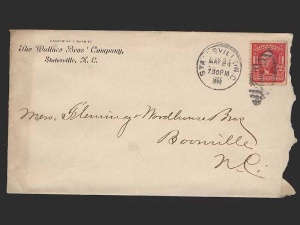 The Wallace Bros. Company,
Statesville, N. C.
STATESVILLE N.C.
MAY 24
7 30 PM
Mess. Fleming & Woodhouse Bros
Boonville
N.C.